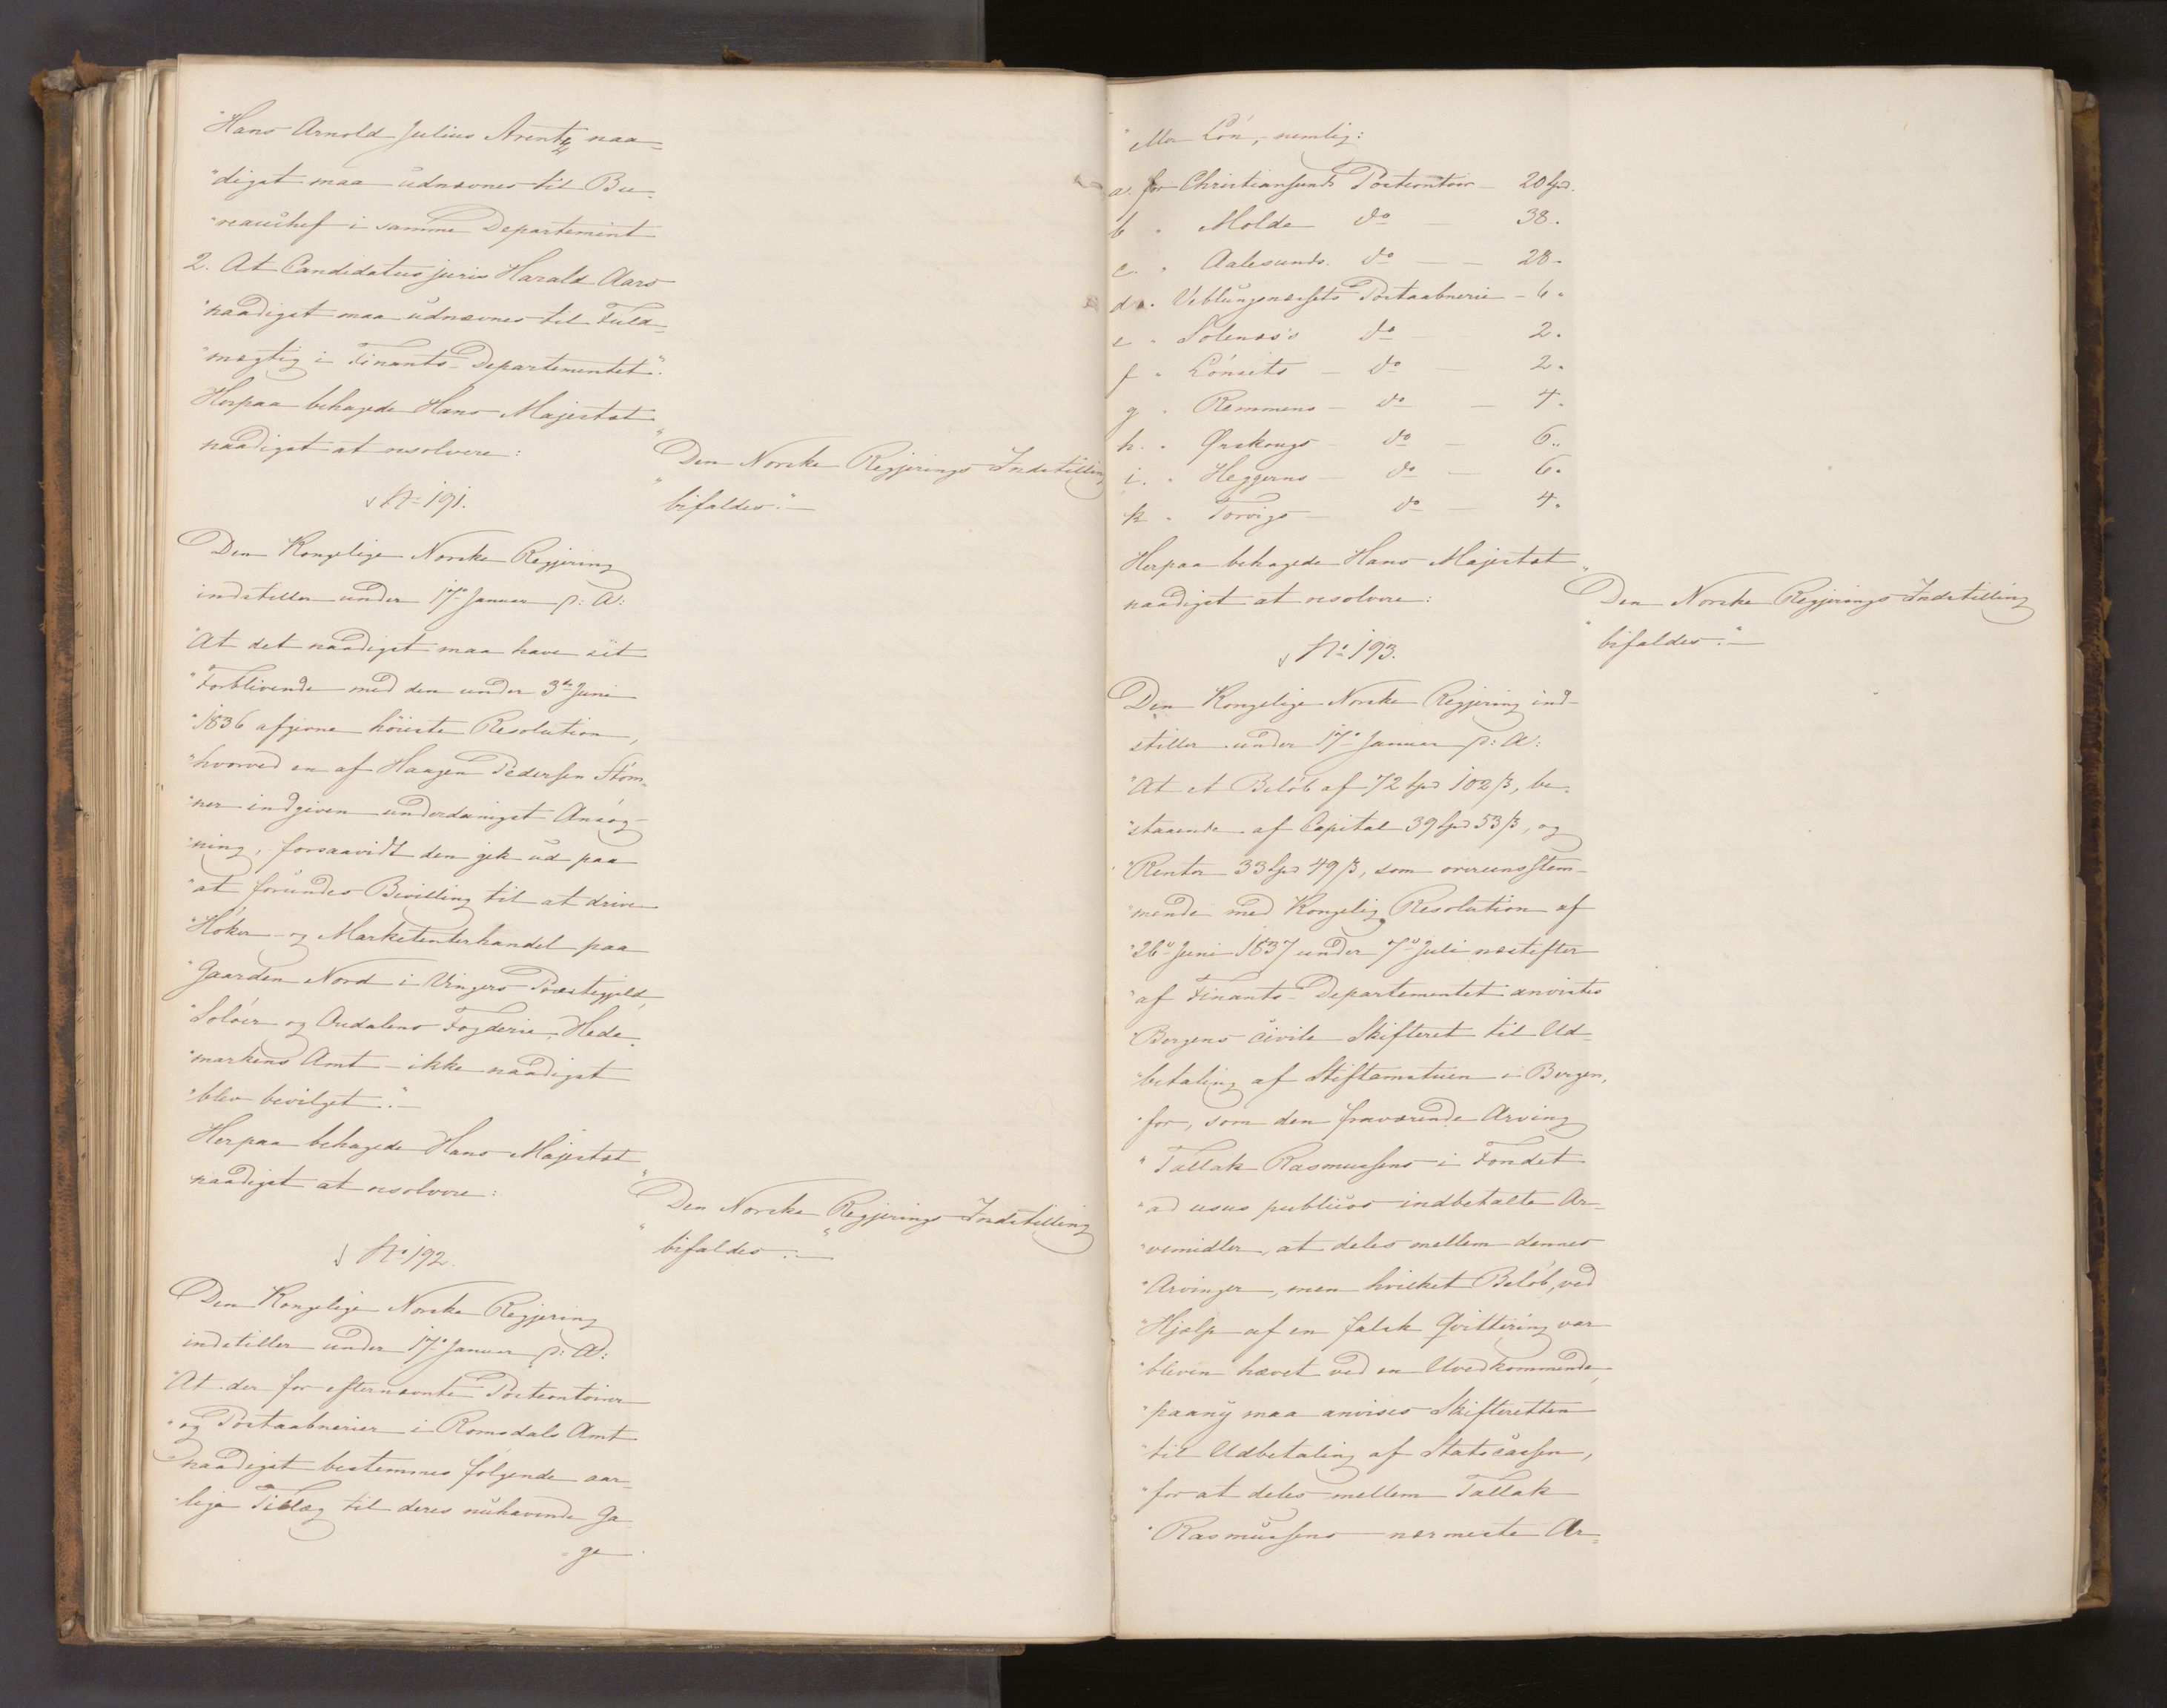 "Hans Arnold Julius Arentz naa=
"digst maa udnævnes til Bu=
"reauchef i samme Departement
2. At Candidatus juris Harald Aars
"naadigst maa udnævnes til Fuld=
"mægtig i Finants-Departementet."
Herpaa behagede Hans Majestæt
naadigst at resolvere:
"Den Norske Regjerings Indstilling
"bifaldes."
No 191.
Den Kongelige Norske Regjering
indstiller under 17de Januar p: A:
"At det naadigst maa have sit
"Forblivende med den under 3die Juni
"1836 afgivne höieste Resolution,
"hvorved en af Haagen Pedersen Stöm=
"ner indgiven underdanigst Ansög=
"ning, forsaavidt den gik ud paa
"at forundes Bevilling til at drive
"Höker- og Marketenterhandel paa
"Gaarden Nord i Vingers Præstegjeld,
"Solöer og Oudalens Fogderie, Hede=
"markens Amt ikke naadigst
"blev bevilget."
Herpaa behagede Hans Majestæt
naadigst at resolvere:
"Den Norske Regjerings Indstilling
"bifaldes."
No 192.
Den Kongelige Norske Regjering
indstiller under 17de Januar p: A:
"At der for efternævnte Postcontoirer
"og Postaabnerier i Romsdals Amt
"naadigst bestemmes fölgende aar=
"lige Tillæg til deres nuhavende Ga=
"ge
"eller Lön, nemlig:
a. for Christiansunds Postcontoir 20 Spd.
b " Molde do 38.
c. " Aalesunds do 28.
d " Veblungsnæssets Postaabnerie 6.
e " Solenæs's do 2.
f " Lönsets do 2.
g " Remmens do 4.
h. " Ørskougs do 6.
i. " Heggerns do 6.
k " Torvigs do 4.
Herpaa behagede Hans Majestæt
naadigst at resolvere:
"Den Norske Regjerings Indstilling
"bifaldes."
No 193.
Den Kongelige Norske Regjering ind=
stiller under 17de Januar p: A:
"At et Belöb af 72 Spd 102 ß, be=
"staaende af Capital 39 Spd 53 ß, og
"Renter 33 Spd 49 ß, som overeensstem=
"mende med Kongelig Resolution af
"26de Juni 1837 under 7de Juli næstefter
"af Finants-Departementet anvistes
"Bergens civile Skifteret til Ud=
"betaling af Stiftamtstuen i Bergen,
"for, som den fraværende Arving
"Tallak Rasmussens i Fondet
"ad usus publicos indbetalte Ar=
"vemidler, at deles mellem dennes
"Arvinger, men hvilket Belöb, ved
"Hjælp af en falsk Qvittering var
"bleven hævet ved en Uvedkommende,
"paany maa anvises Skifteretten
"til Udbetaling af Statscassen,
"for at deles mellem Tallak
"Rasmussens nærmeste Ar=